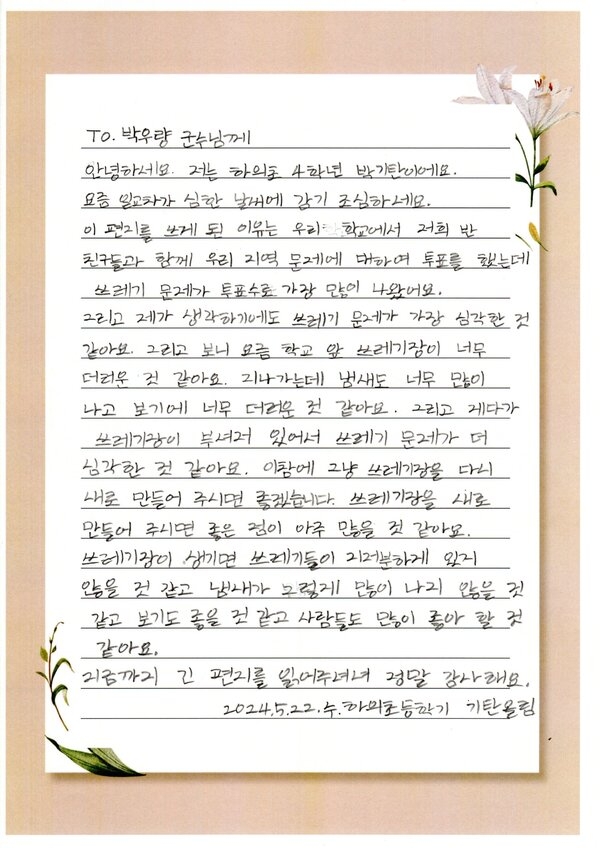 TO. 박우량 군수님께
안녕하세요. 저는 하의초 4학년 박기탄이에요.
요즘 일교차가 심한 날씨에 감기 조심하세요.
이 편지를 쓰게 된 이유는 우리 학교에서 저희 반
친구들과 함께 우리 지역 문제에 대하여 투표를 했는데
쓰레기 문제가 투표수로 가장 많이 나왔어요.
그리고 제가 생각하기에도 쓰레기 문제가 가장 심각한 것
같아요. 그리고 보니 요즘 학교 앞 쓰레기장이 너무
더러운 것 같아요. 지나가는데 냄새도 너무 많이
나고 보기에 너무 더러운 것 같아요. 그리고 게다가
쓰레기장이 부셔저 있어서 쓰레기 문제가 더
심각한 것 같아요. 이참에 그냥 쓰레기장을 다시
새로 만들어 주시면 좋겠습니다. 쓰레기장을 새로
만들어 주시면 좋은 점이 아주 많을 것 같아요.
쓰레기장이 생기면 쓰레기들이 지저분하게 있지
않을 것 같고 냄새가 그렇게 많이 나지 않을 것
같고 보기도 좋을 것 같고 사람들도 많이 좋아 할 것
같아요.
지금까지 긴 편지를 읽어주셔서 정말 감사해요.
2024.5.22.수.하의초등학교 기탄올림